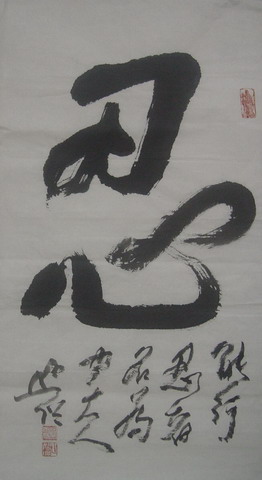 忍
能行
忍者
名為
大人